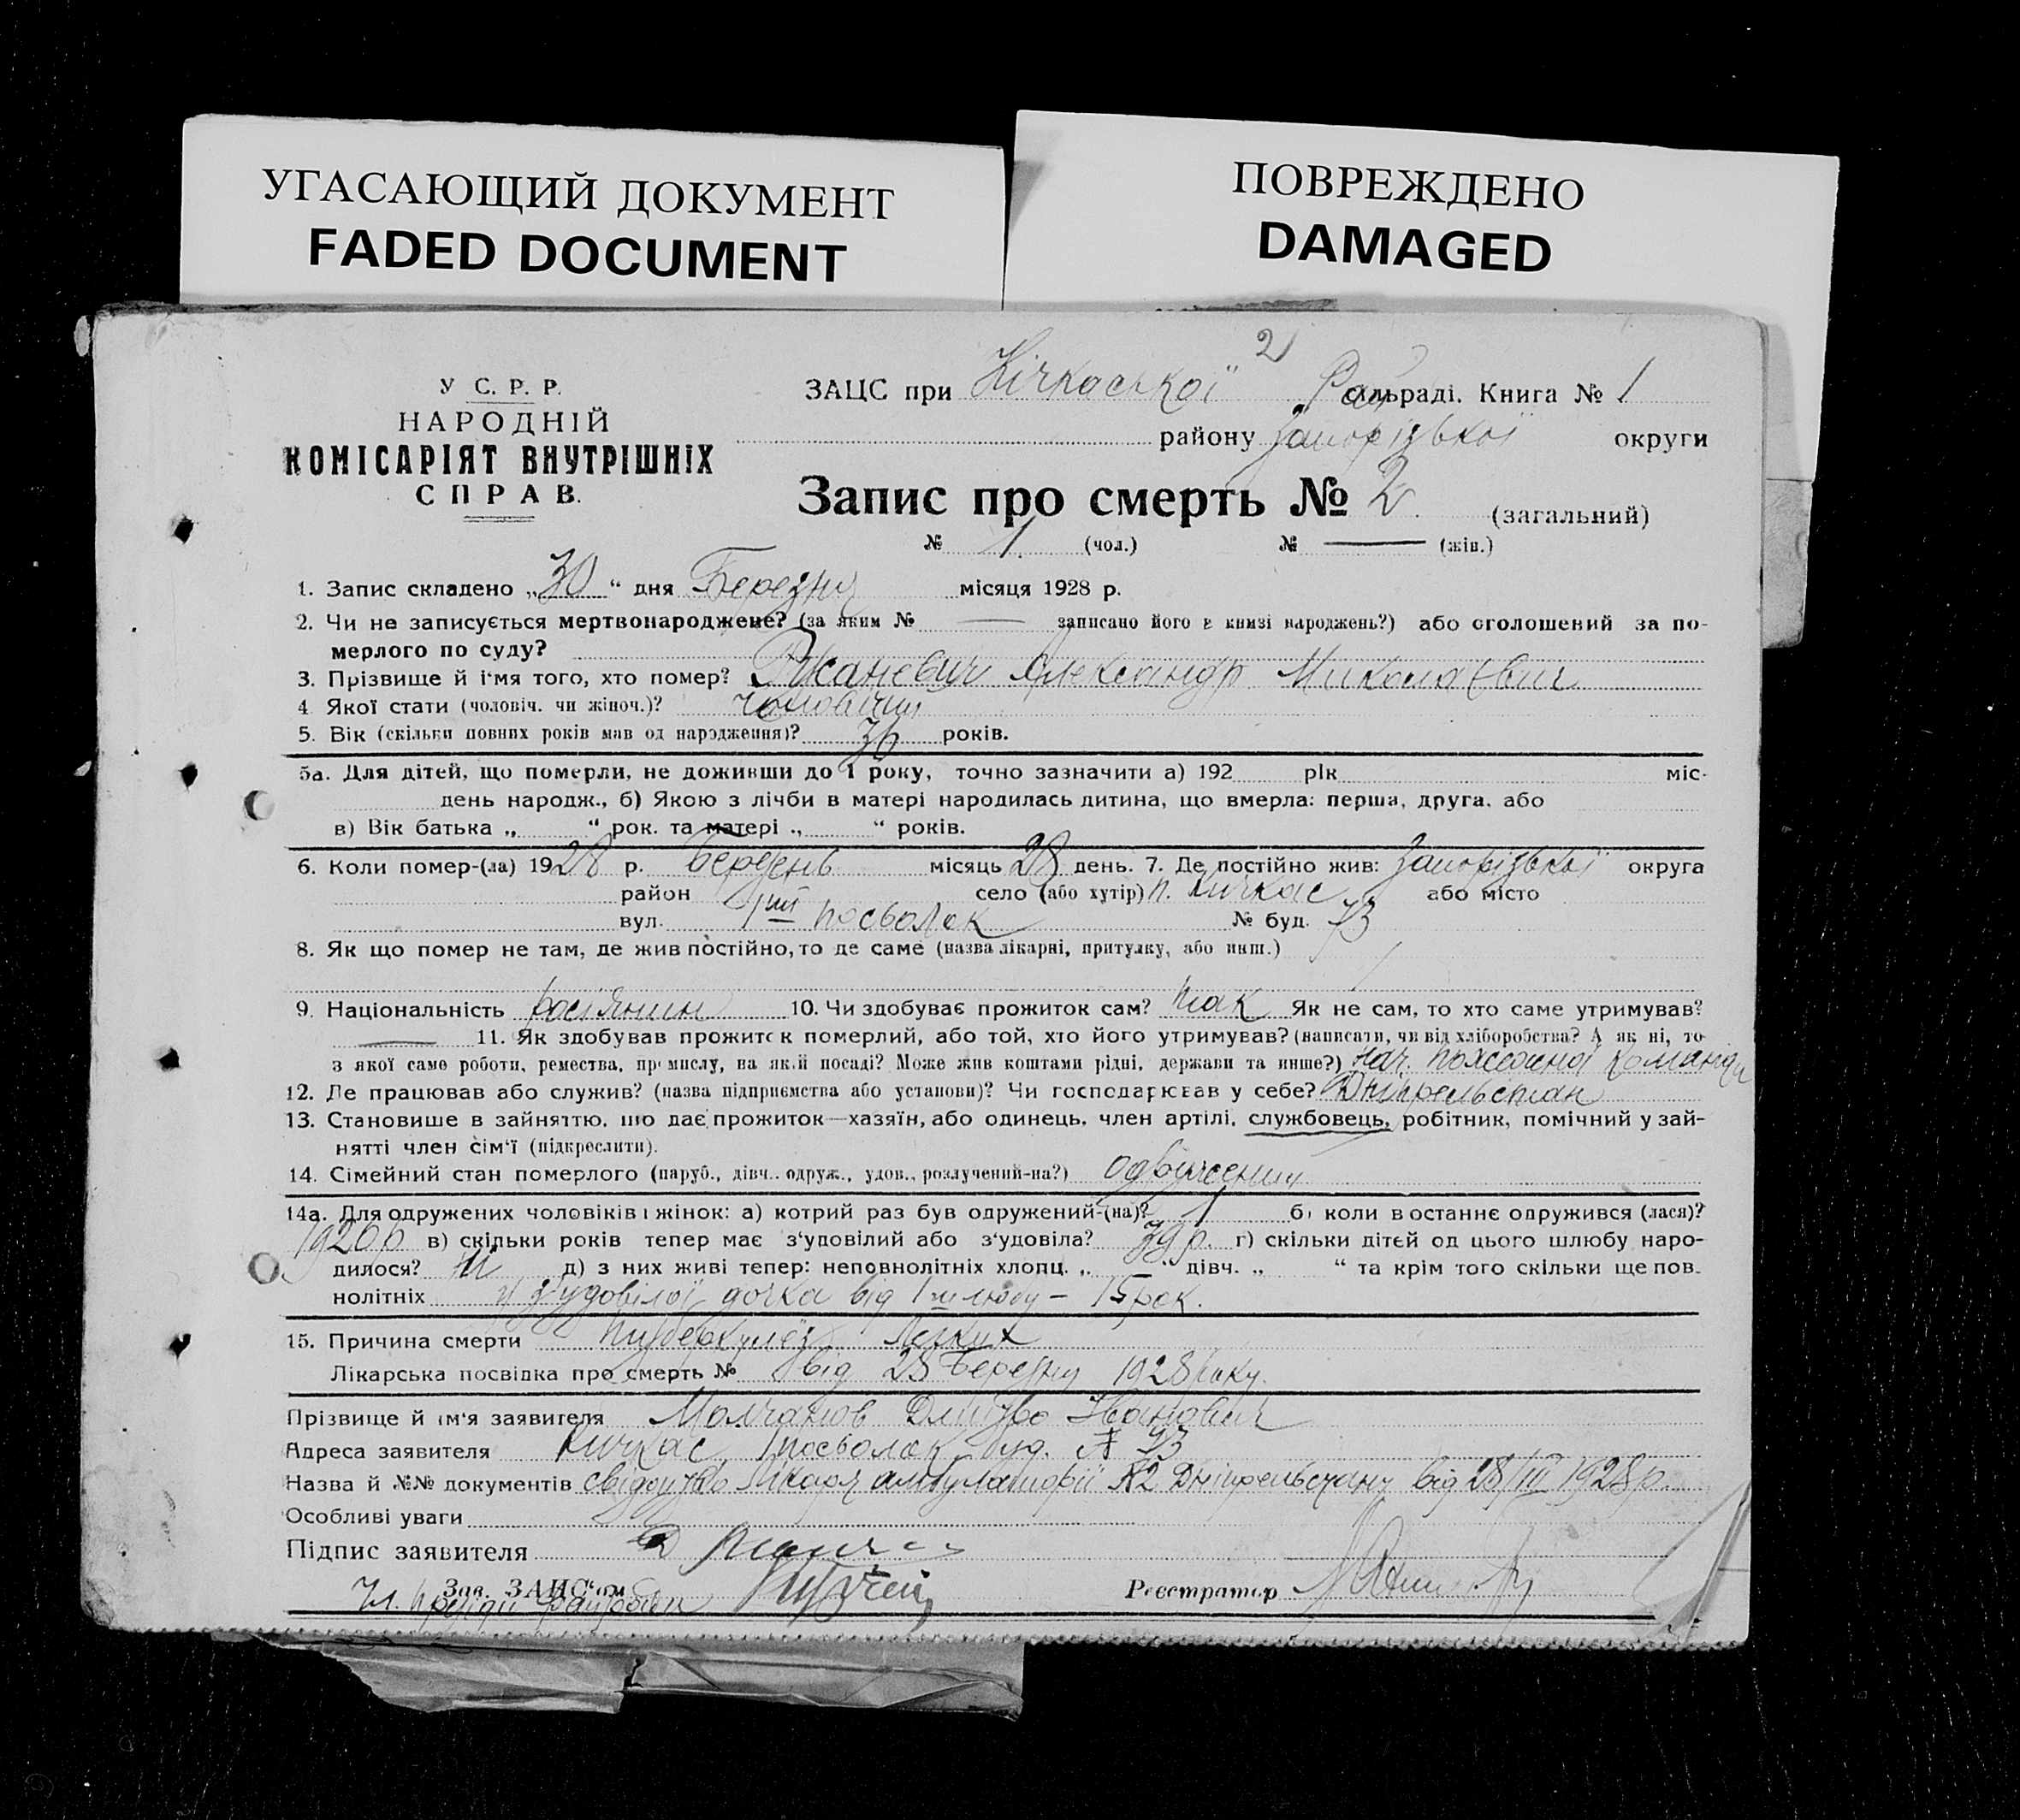 УГАСАЮЩИЙ ДОКУМЕНТ
FADED DOCUMENT
ПОВРЕЖДЕНО
DAMAGED
2
У С. Р. Р.
НАРОДНІЙ
КОМІСАРІЯТ ВНУТРІШНІХ
СПРАВ.
ЗАЦС при Кічкаської Рай сільраді. Книга № 1
району Запорізької округи
Запис про смерть № 2. (загальний)
№ 1. (чол.) № — (жін.)
1. Запис складено „30“ дня Березня місяця 1928 р.
2. Чи не записується мертвонароджене? (за яким № — записано його в книзі народжень?) або оголошений за по-
мерлого по суду?
3. Прізвище й і'мя того, хто помер? Ржаневич Александр Миколаєвич
4 Якої стати (чоловіч. чи жіноч.)? чоловічин
5. Вік (скільки повних років мав од народження)? 36 років.
5а. Для дітей, що померли, не доживши до 1 року, точно зазначити а) 192 рік міс-
день народж., б) Якою з лічби в матері народилась дитина, що вмерла: перша, друга. або
в) Вік батька „ “ рок. та матері „ “ років.
6. Коли помер-(ла) 1928 р. березень місяць 28 день. 7. Де постійно жив: Запорізької округа
район село (або хутір) п. Кичкас або місто
вул. 1ий посьолок № буд. 73
8. Як що помер не там, де жив постійно, то де саме (назва лікарні, притулку, або инш.)
9. Національність росіянин 10. Чи здобуває прожиток сам? так Як не сам, то хто саме утримував?
— 11. Як здобував прожиток померлий, або той, хто його утримував? (написати, чи від хліборобства? А як ні, то
з якої саме роботи, ремества, промислу, на якій посаді? Може жив коштами рідні, держави та инше?) нач. пожежної команди
12. Де працював або служив? (назва підприємства або установи)? Чи господарював у себе? Дніпрельстан
13. Становише в зайняттю, що дає прожиток—хазяїн, або одинець, член артілі, службовець, робітник, помічний у зай-
нятті член сім'ї (підкреслити).
14. Сімейний стан померлого (паруб., дівч.. одруж., удов., розлучений-на?) одружений
14а. Для одружених чоловіків і жінок: а) котрий раз був одружений-(на)? 1 б) коли востаннє одружився (лася)?
1920 р в) скільки років тепер має з'удовілий або з'удовіла? 39 р. г) скільки дітей од цього шлюбу наро-
дилося? д) з них живі тепер: неповнолітніх хлопц. „ дівч. „ “ та крім того скільки ще пов-
нолітніх у з'удовілої дочка від 1 шлюбу – 15 рок.
15. Причина смерти туберкульоз легких
Лікарська посвідка про смерть № від 28 Березня 1928 року.
Прізвище й ім'я заявителя Молчанов Дмитро Іванович
Адреса заявителя Кичкас, 1 посьолок буд. № 73
Назва й №№ документів свідоцтво лікаря амбулаторії №2 Дніпрельстану від 28/III 1928 р.
Особливі уваги
Підпис заявителя
Зав. ЗАЦС'ом
Реєстратор